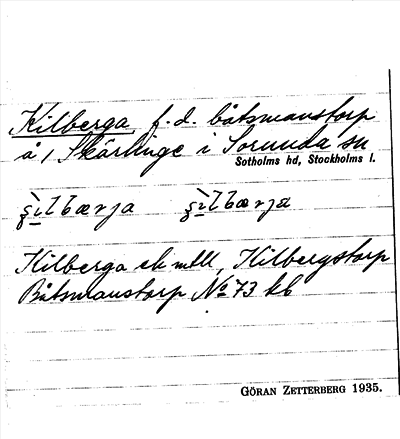 Kilberga f.d. båtsmanstorp
å 1 Skärlinge i Sorunda sn
Sotholms hd, Stockholms l.
Kilberga ek mtll, Kilbergstorp
Båtsmanstorp No 73 kb
GÖRAN ZETTERBERG 1935.